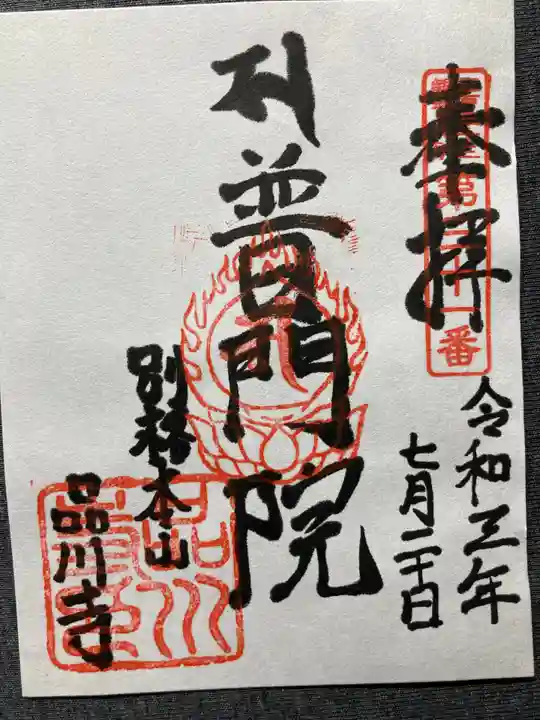 奉拝
令和三年
七月二十日
普門院
別格本山
品川寺